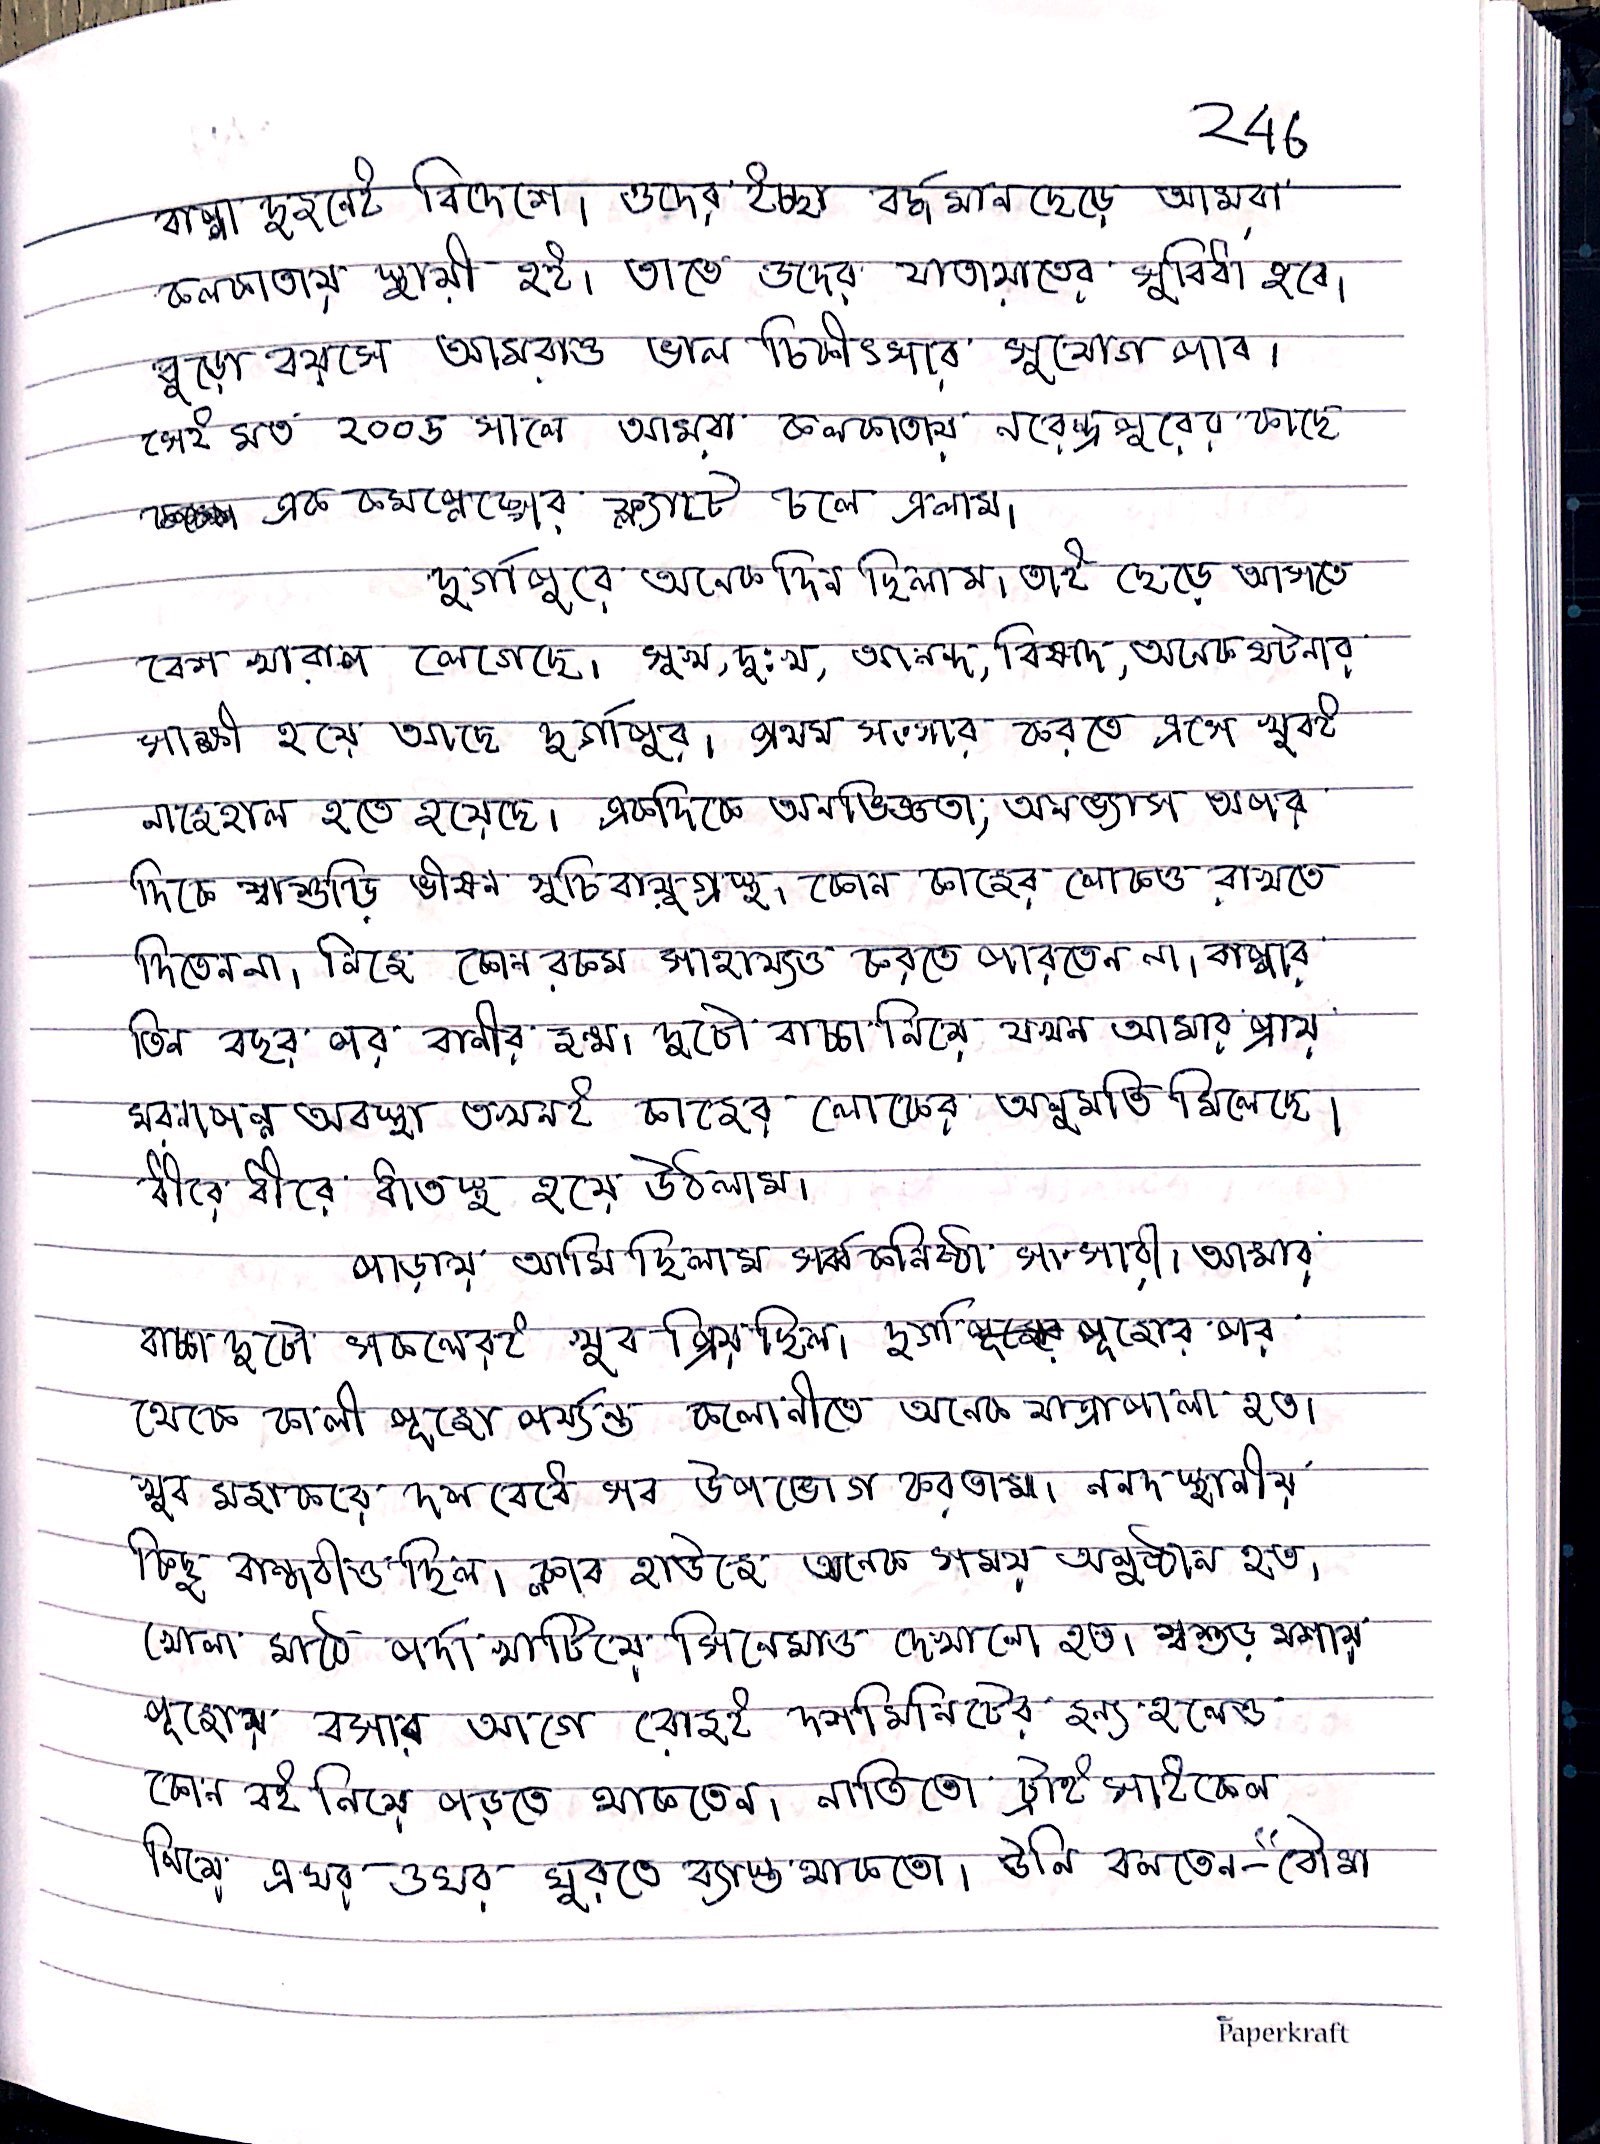 246
বাপ্পা দুজনেই বিদেশে। ওদের ইচ্ছা বর্দ্ধমান ছেড়ে আমরা
কলকাতায় স্থায়ী হই। তাতে ওদের যাতায়াতের সুবিধা হবে।
বুড়ো বয়সে আমরাও ভাল চিকীৎসার সুযোগ পাব।
সেই মত ২০০৬ সালে আমরা কলকাতায় নরেন্দ্রপুরের কাছে
এক কমপ্লেক্সের ফ্ল্যাটে চলে এলাম।
দুর্গাপুরে অনেক দিন ছিলাম। তাই ছেড়ে আসতে
বেশ খারাপ লেগেছে। সুখ, দুঃখ, আনন্দ, বিষাদ, অনেক ঘটনার
সাক্ষী হয়ে আছে দুর্গাপুর। প্রথম সংসার করতে এসে খুবই
নাজেহাল হতে হয়েছে। একদিকে অনভিজ্ঞতা, অনভ্যাস অপর
দিকে শ্বাশুড়ি ভীষন সুচিবায়ুগ্রস্থ। কোন কাজের লোকও রাখতে
দিতেন না। নিজে কোন রকম সাহায্যও করতে পারতেন না। বাপ্পার
তিন বছর পর রানীর জন্ম। দুটো বাচ্চা নিয়ে যখন আমার প্রায়
মরনাপন্ন অবস্থা তখনই কাজের লোকের অনুমতি মিলেছে।
ধীরে ধীরে ধাতস্থ হয়ে উঠলাম।
পাড়ায় আমি ছিলাম সর্ব্বকনিষ্ঠা সংসারী। আমার
বাচ্চা দুটো সকলেরই খুব প্রিয় ছিল। দুর্গা পূজোর পর
থেকে কালী পূজো পর্য্যন্ত কলোনীতে অনেক যাত্রাপালা হত।
খুব মজা করে দল বেধে সব উপভোগ করতাম। ননদ স্থানীয়
কিছু বান্ধবীও ছিল। ক্লাব হাউজে অনেক সময় অনুষ্ঠান হত,
খোলা মাঠে পর্দা খাটিয়ে সিনেমাও দেখানো হত। শ্বশুড় মশায়
পূজোয় বসার আগে রোজই দশ মিনিটের জন্য হলেও
কোন বই নিয়ে পড়তে থাকতেন। নাতিতো ট্রাই সাইকেল
নিয়ে এঘর ওঘর ঘুরতে ব্যাস্ত থাকতো। উনি বলতেন – "বৌমা
Paperkraft